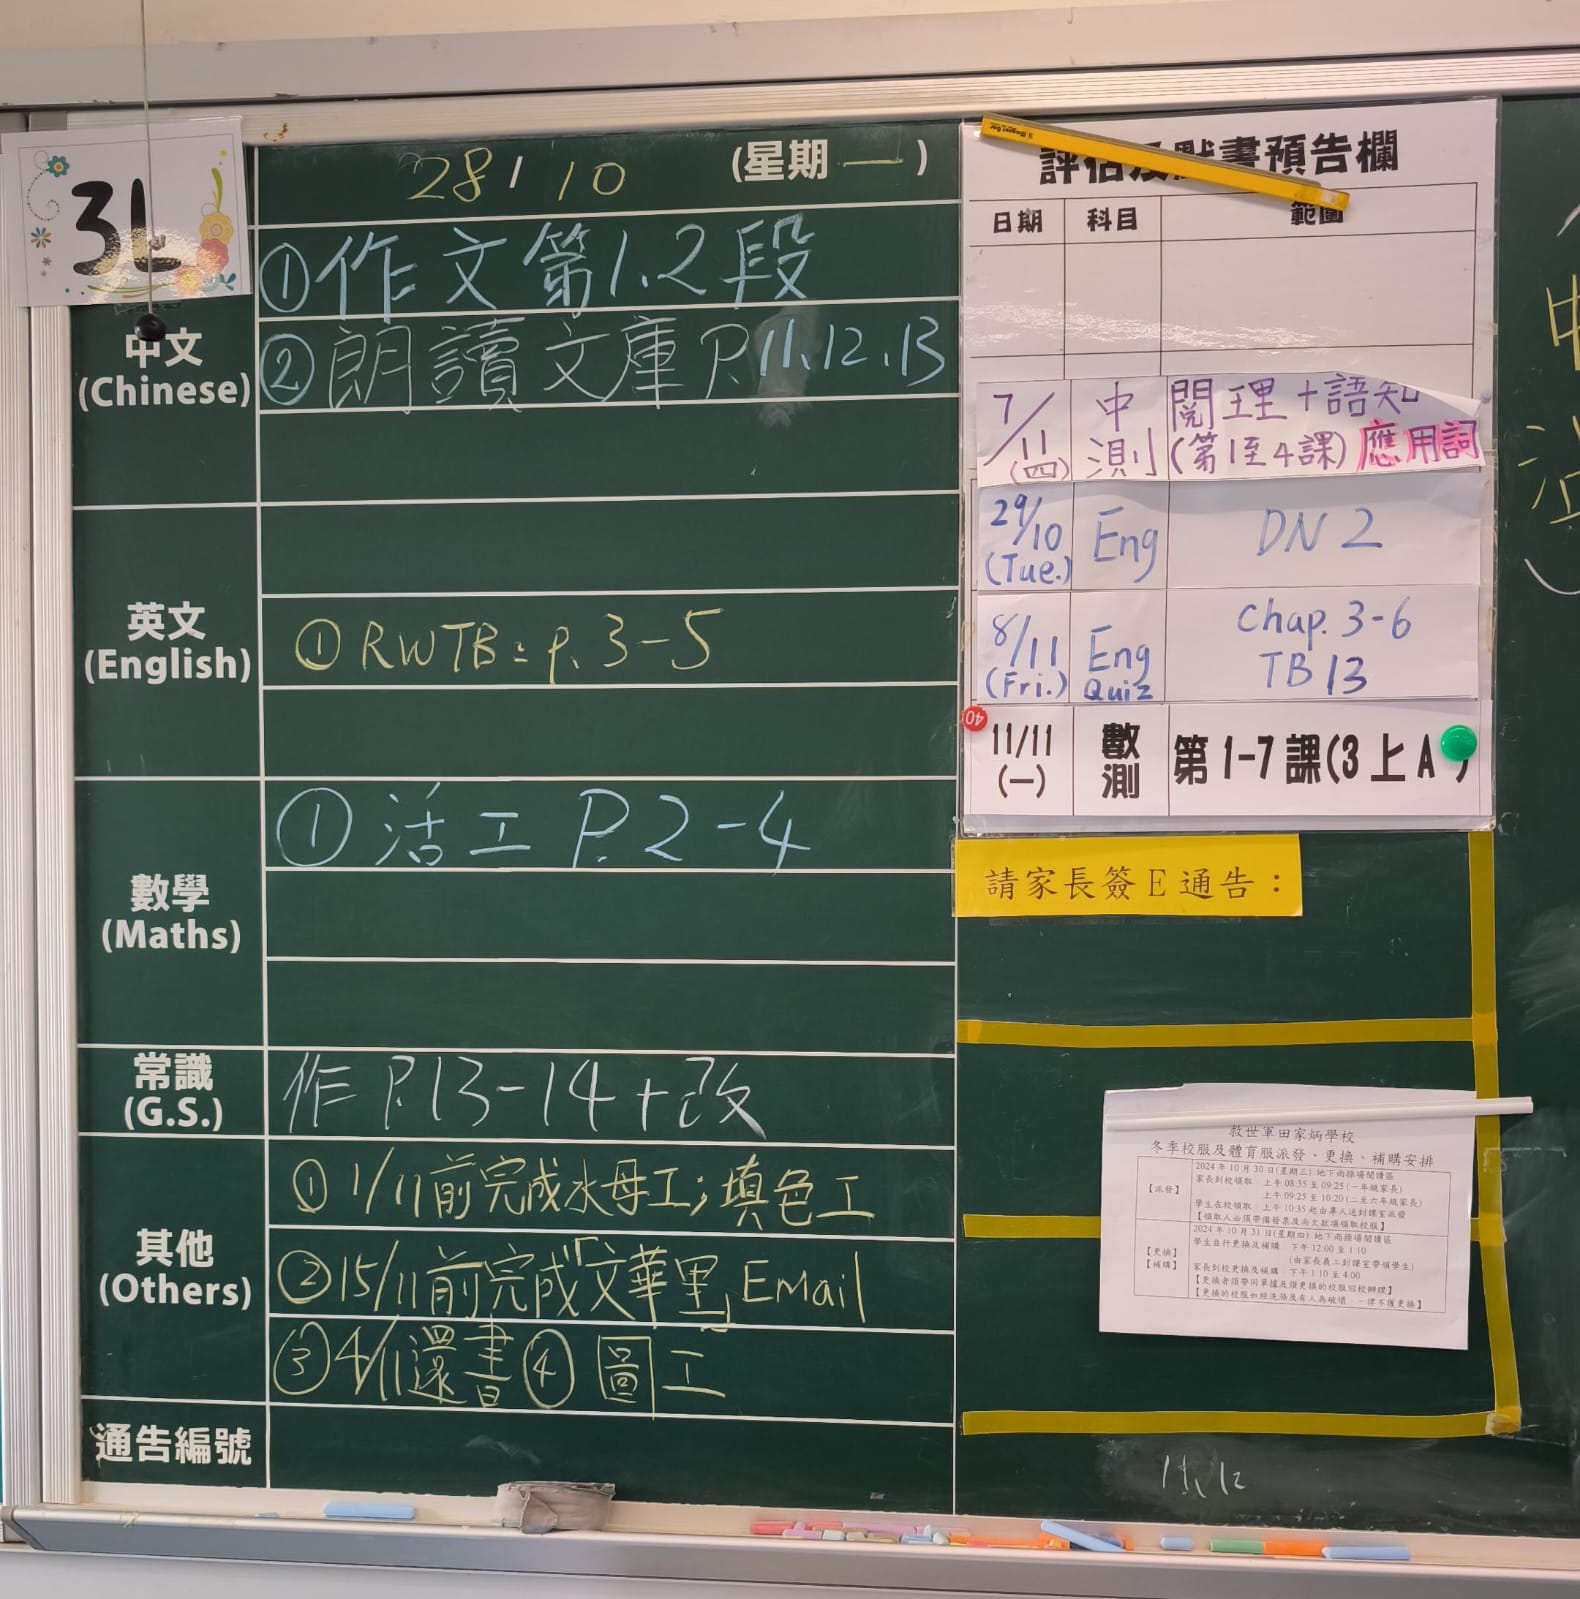 3L
28/10 (星期一)
中文
(Chinese)
①作文第1、2段
②朗讀文庫P.11、12、13
英文
(English)
①RWTB: p. 3-5
數學
(Maths)
①活工 P.2-4
常識
(G.S.)
作 P.13-14+改
其他
(Others)
①1/11前完成水母工;填色工
②15/11前完成「文華里」Email
③4/11還書④圖工
通告編號
評估及默書預告欄
日期 科目 範圍
7/11(四) 中測 閱理+語知
(第1至4課) 應用詞
29/10 (Tue.) Eng DN 2
8/11 (Fri.) Eng Quiz Chap. 3-6
TB 13
40
11/11 (一) 數測 第1-7課(3上A)
請家長簽E通告:
救世軍田家炳學校
冬季校服及體育服派發、更換、補購安排
【派發】
2024年10月30日(星期三) 地下雨操場閱讀區
家長到校領取: 上午08:35至09:25(一年級家長)
上午09:25至10:20(二至六年級家長)
學生在校領取: 上午10:35起由專人送到課室派發
【領取人必須帶備發票及尚欠款項領取校服】
【更換】
【補購】
2024年10月31日(星期四) 地下雨操場閱讀區
學生自行更換及補購 下午12:00至1:10
(由家長義工到課室帶領學生)
家長到校更換及補購 下午1:10至4:00
【更換者須帶同單據及須更換的校服回校辦理】
【更換的校服如經洗滌及有人為破壞,一律不獲更換】